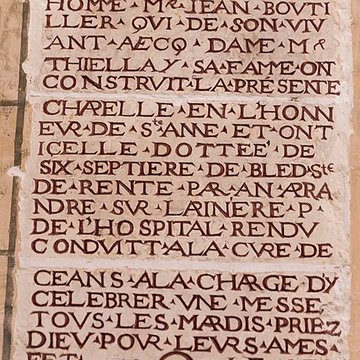 HOMME▴Mᵉ▴JEAN▴BOVTI
LLER▴QVI▴DE▴SON▴VIV
ANT▴AECQ▴DAME▴M
THIELLAY▴SA▴FAME▴ONT
CONSTRVIT▴LA▴PRÉSENTE
CHAPELLE▴EN▴L'HONN
EVR▴DE▴Sᵗᵉ▴ANNE▴ET▴ONT
ICELLE▴DOTTÉE▴DE
SIX▴SEPTIERE▴DE▴BLED▴Sᵗᵉ
DE▴RENTE▴PAR▴AN▴A▴PRA
NDRE▴SVR▴LAINERE▴P
DE▴L'HOSPITAL▴RENDV
CONDVIT▴A▴LA▴CVRE▴DE
CEANS▴A▴LA▴CHARGE▴D'Y
CELEBRER▴VNE▴MESSE
TOVS▴LES▴MARDIS▴PRIEZ
DIEV▴POVR▴LEVRS▴AMES